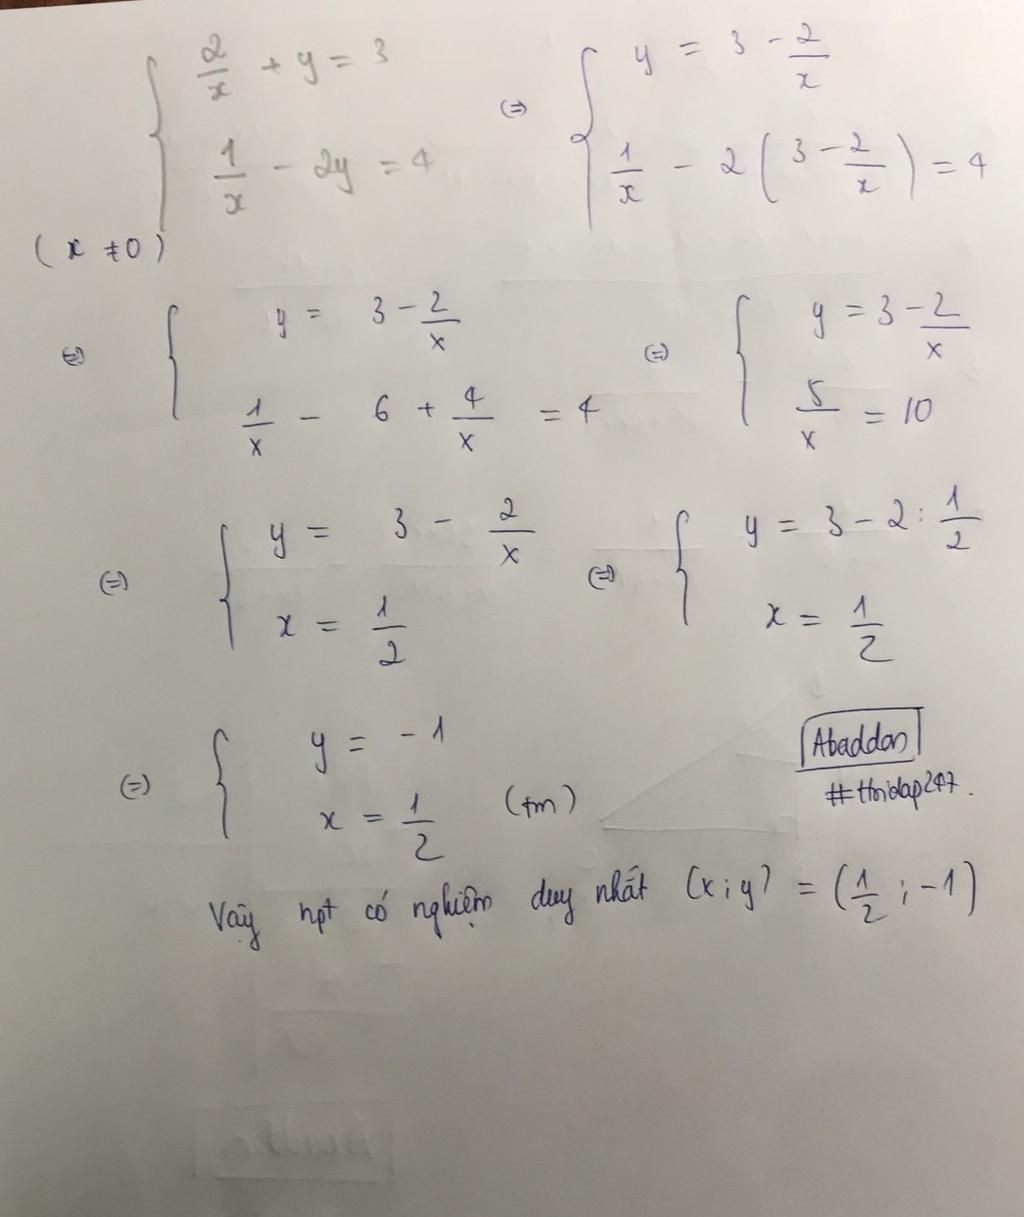 { 2/x + y = 3
1/x - 2y = 4
(x ≠ 0)
(=) { y = 3 - 2/x
1/x - 2(3 - 2/x) = 4
(=) { y = 3 - 2/x
1/x - 6 + 4/x = 4
(=) { y = 3 - 2/x
5/x = 10
(=) { y = 3 - 2/x
x = 1/2
(=) { y = 3 - 2 : 1/2
x = 1/2
(=) { y = -1
x = 1/2 (tm)
Abaddon
Vậy hpt có nghiệm duy nhất (x ; y) = (1/2 ; -1)